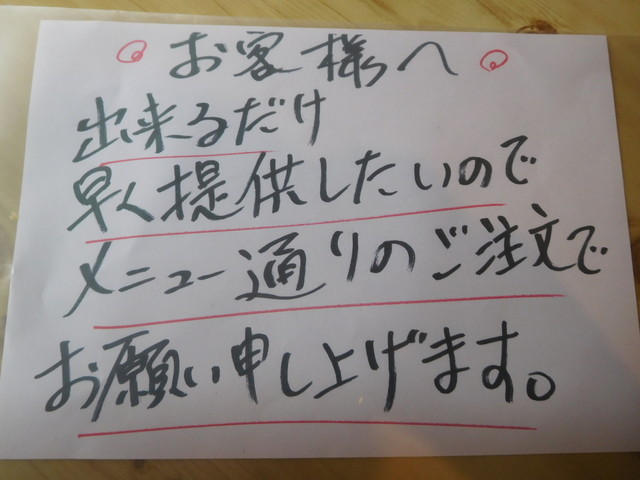 お客様へ
出来るだけ
早く提供したいので
メニュー通りのご注文で
お願い申し上げます。